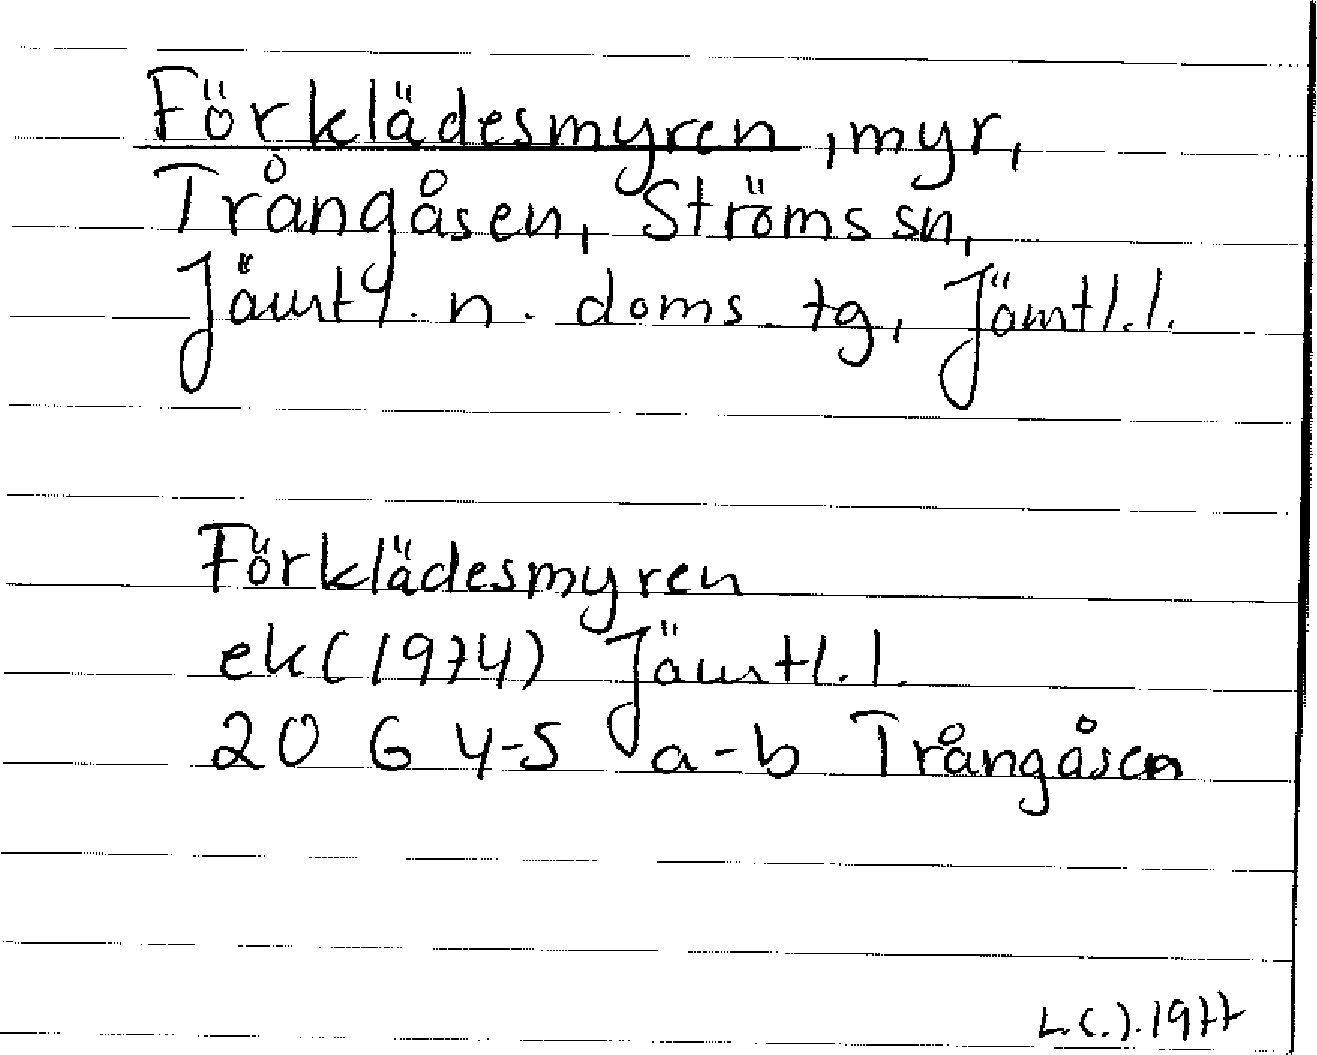 Förklädesmyren, myr,
Trångåsen, Ströms sn,
Jämtl. n. doms. tg, Jämtl. l.
Förklädesmyren
ek (1974) Jämtl. l.
20 G 4-5 a-b Trångåsen
1977